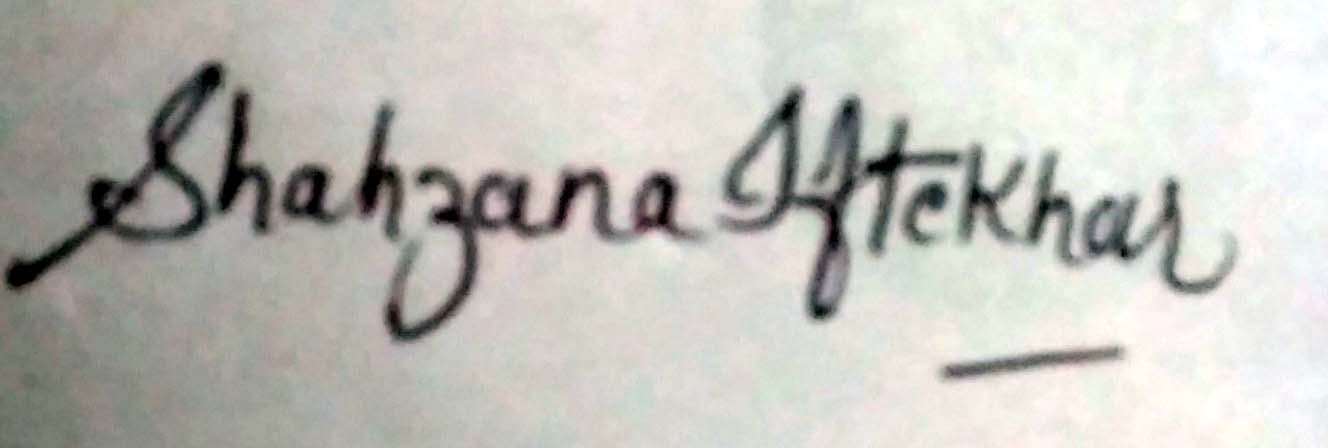 Shahzana Iftekhar